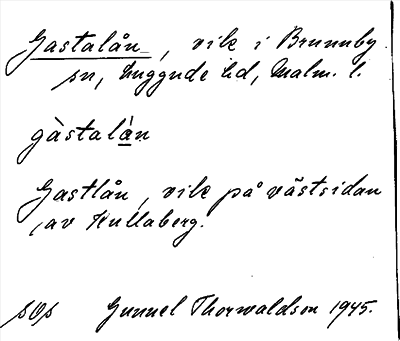 Gastalån, vik i Brunnby
sn, Luggude hd, Malm. l.
gàstalån
Gastlån, vik på västsidan
av Kullaberg.
sOs Gunnel Thorwaldson 1945.